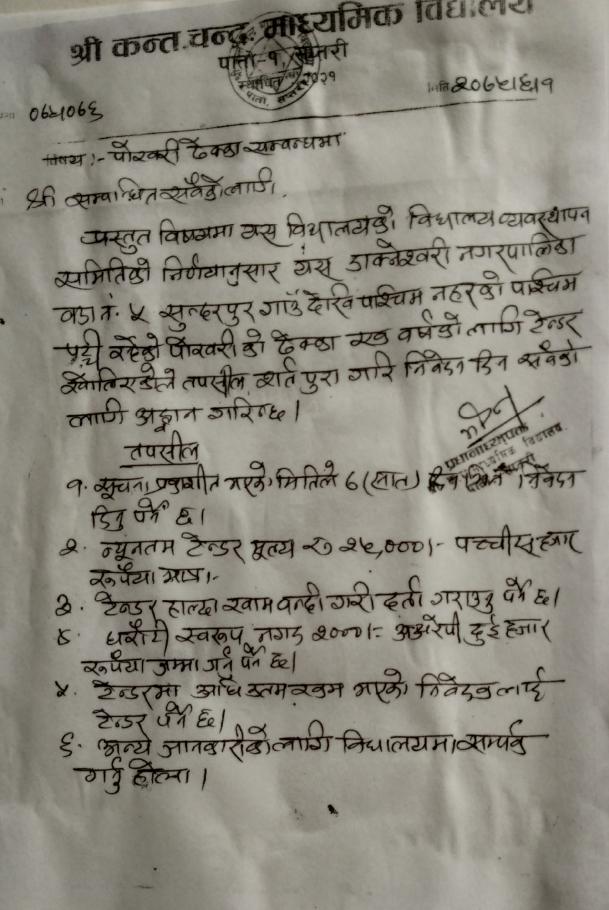 श्री कन्त चन्द्र माध्यमिक विद्यालय
पातो-१, सप्तरी
मिति २०७५।६।१
०७५।०७६
विषय :- पोखरी ठेक्का सम्बन्धमा
श्री सम्बन्धित सबैको लागी,
प्रस्तुत विषयमा यस विद्यालयको विद्यालय व्यवस्थापन
समितिको निर्णयानुसार यस डाक्नेश्वरी नगरपालिका
वडा नं. ५ सुन्दरपुर गाउँ देखि पश्चिम नहरको पश्चिम
पट्टी रहेको पोखरी को ठेक्का एक वर्षको लागि टेन्डर
तपसील शर्त पुरा गरि निवेदन दिन सबैको
लागी अह्वान गरिन्छ।
प्रधानाध्यापक
तपसील
१. सूचना प्रकाशीत भएको मितिले ७ (सात) दिन भित्र निवेदन
दिनु पर्ने छ।
२. न्यूनतम टेन्डर मूल्य रु २५,०००।- पच्चीस हजार
रूपैया मात्र।-
३. टेन्डर हाल्दा खाम वन्दी गरी दर्ता गराउनु पर्ने छ।
४. धरौटी स्वरूप नगद २०००।= अक्षरेपी दुई हजार
रूपैया जम्मा गर्नु पर्ने छ।
५. टेन्डरमा अधिकतम रकम भएको निवेदकलाई
टेन्डर पर्ने छ।
६. अन्य जानकारीको लागि विद्यालयमा सम्पर्क
गर्नु होला।